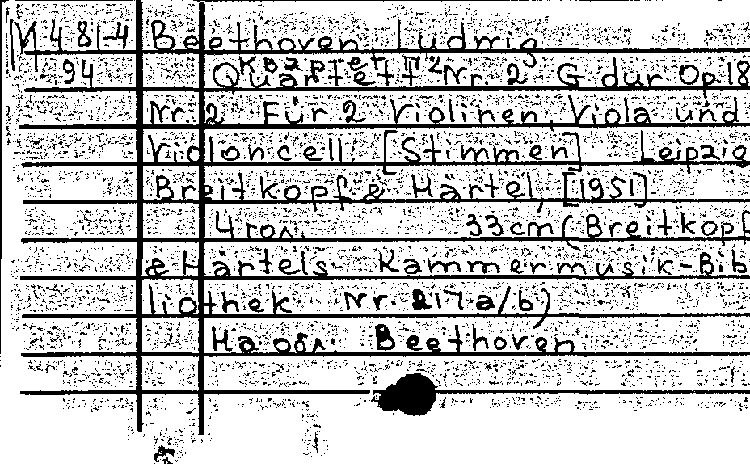 М 481-4 Beethoven, Ludwig
94 Квартет №2
Quartett Nr. 2 G dur Op 18
Nr. 2 Für 2 Violinen, Viola und
Violoncell. [Stimmen] Leipzig
Breitkopf & Härtel, [1951]
4 гол. 33 cm (Breitkopf
& Härtels Kammermusik-Bib
liothek Nr. 217 a/b)
На обл: Beethoven